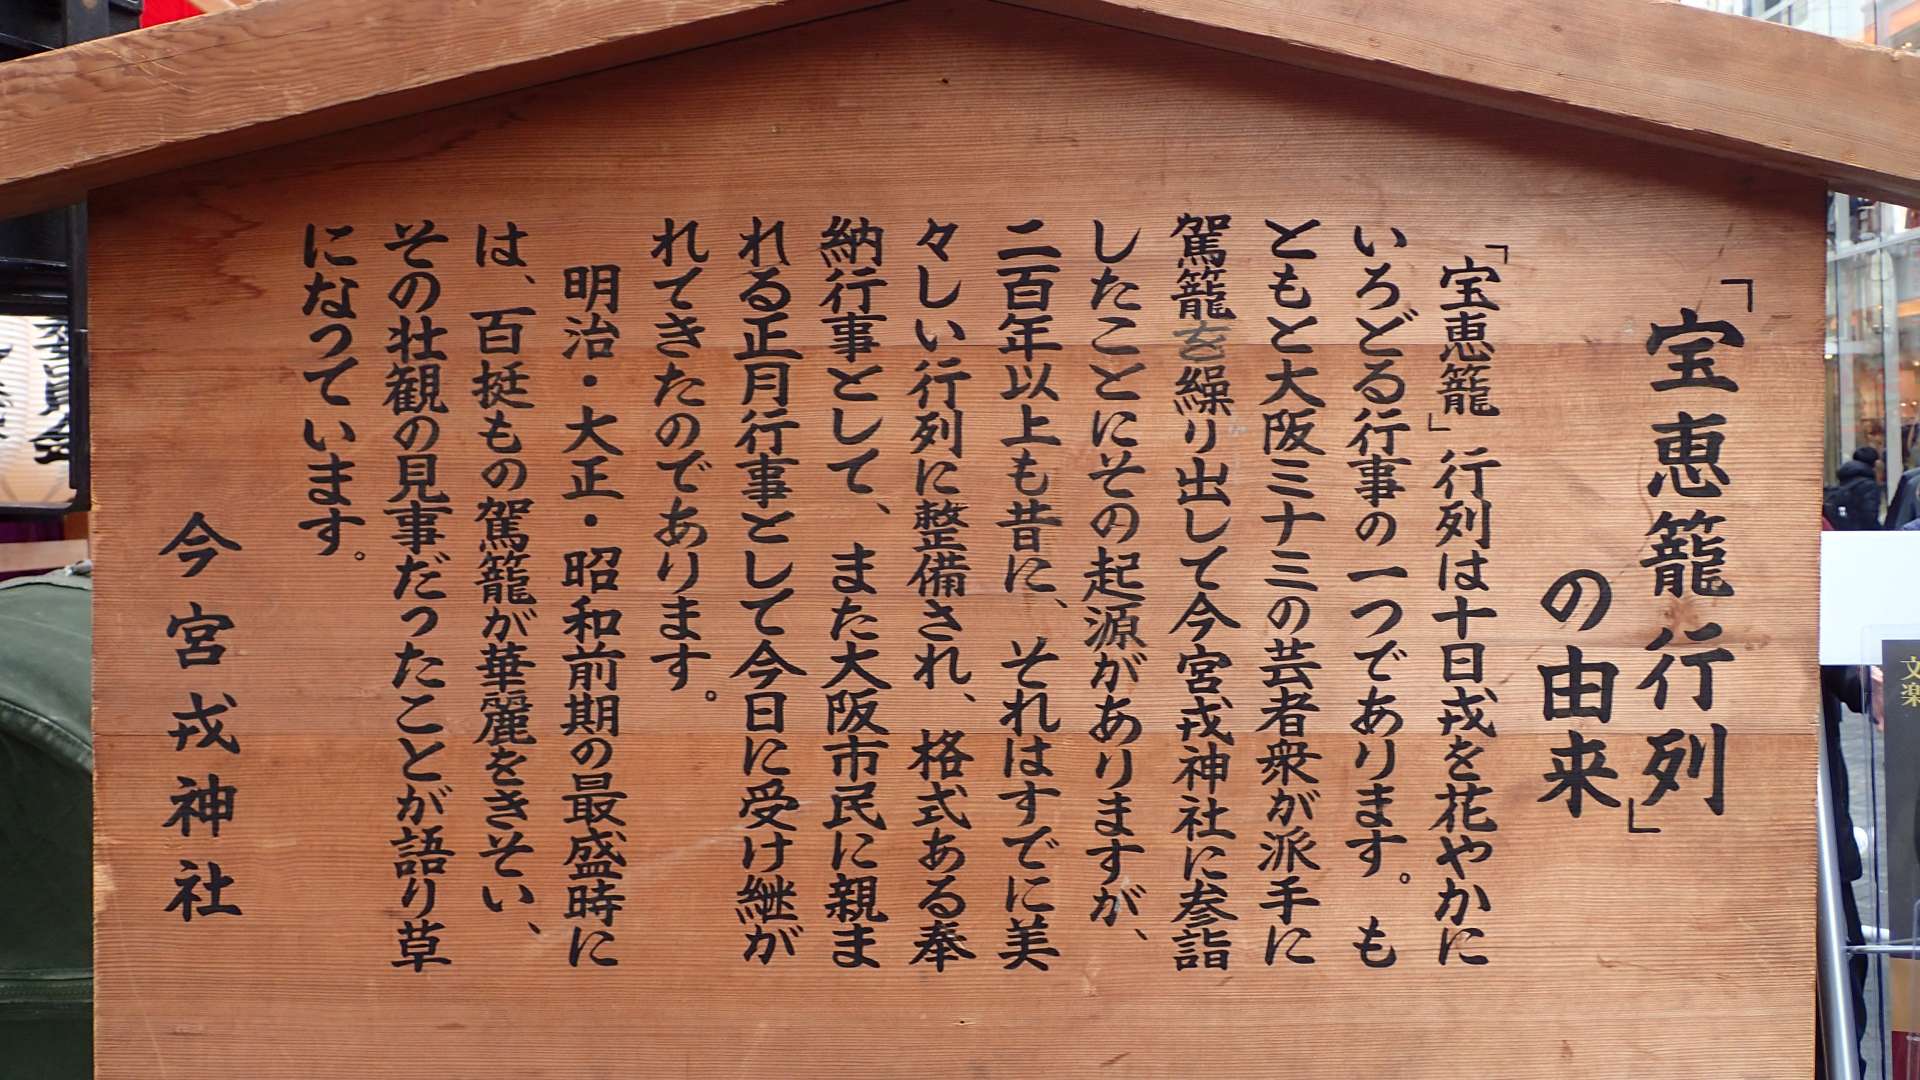 「宝恵籠行列」
の由来
「宝恵籠」行列は十日戎を花やかに
いろどる行事の一つであります。も
ともと大阪ミナミの芸者衆が派手に
駕籠を繰り出して今宮戎神社に参詣
したことにその起源がありますが、
二百年以上も昔に、それはすでに美
々しい行列に整備され、格式ある奉
納行事として、また大阪市民に親ま
れる正月行事として今日に受け継が
れてきたのであります。
明治・大正・昭和前期の最盛時に
は、百挺もの駕籠が華麗をきそい、
その壮観の見事だったことが語り草
になっています。
今宮戎神社
文楽